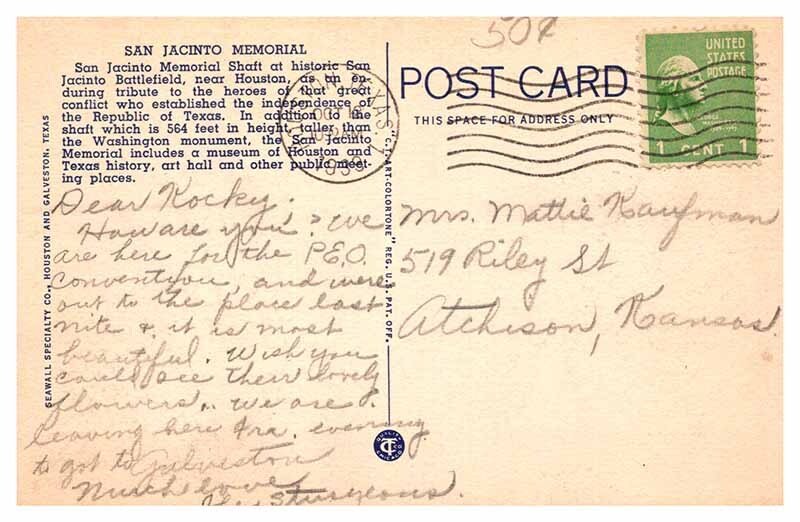 50¢
SAN JACINTO MEMORIAL
San Jacinto Memorial Shaft at historic San
Jacinto Battlefield, near Houston, as an en-
during tribute to the heroes of that great
conflict who established the independence of
the Republic of Texas. In addition to the
shaft which is 564 feet in height, taller than
the Washington monument, the San Jacinto
Memorial includes a museum of Houston and
Texas history, art hall and other public meet-
ing places.
SEAWALL SPECIALTY CO., HOUSTON AND GALVESTON, TEXAS
Dear Kocky.
How are you? We
are here for the P.E.O.
Convention, and were
out to the place last
nite & it is most
beautiful. Wish you
could see their lovely
flowers.. We are
leaving here Fra. evening
to got to Galveston
Much love
The Sturgeons.
TEXAS
OCT
1939
"C.T. ART-COLORTONE" REG. U.S. PAT. OFF.
QUALITY
CT
CHICAGO
POST CARD
THIS SPACE FOR ADDRESS ONLY
UNITED
STATES
POSTAGE
GEORGE
WASHINGTON
1 CENT 1
Mrs. Mattie Kaufman
519 Riley St
Atchison, Kansas.